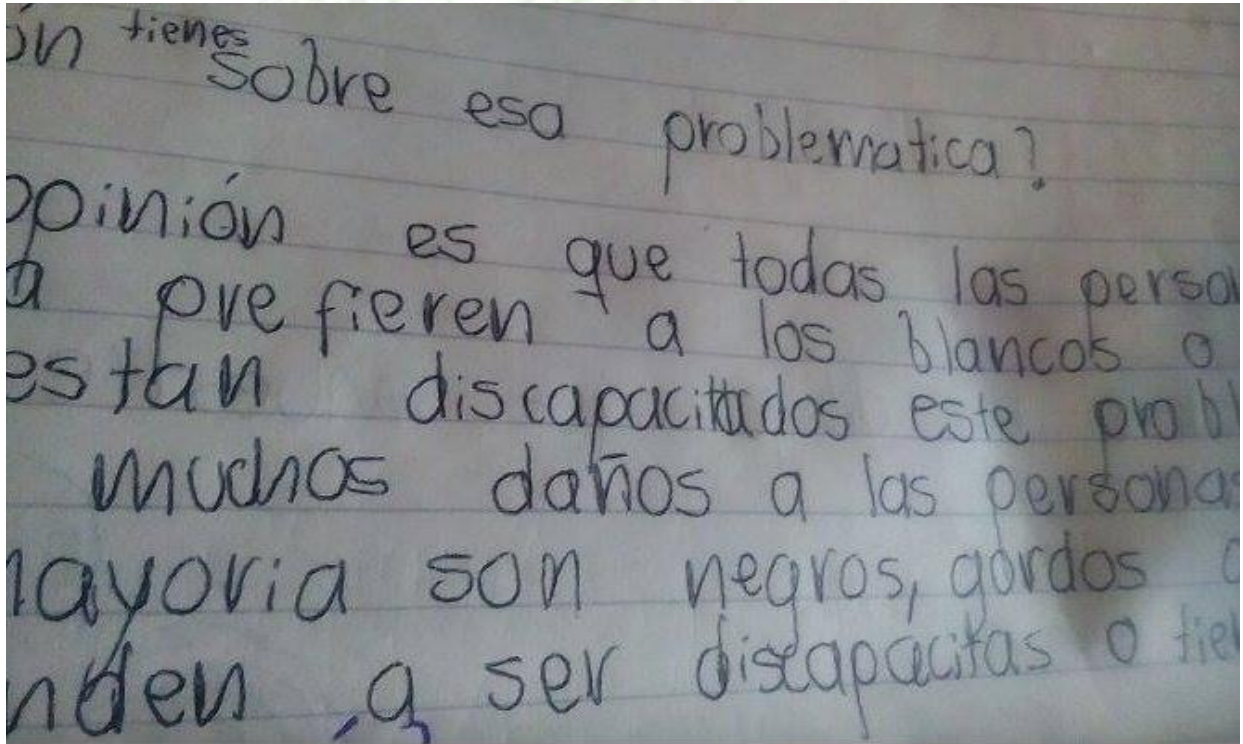 ón tienes sobre esa problematica?
opinión es que todas las perso
a prefieren a los blancos o
estan discapacitados este probl
muchos daños a las personas
mayoria son negros, gordos o
nden a ser discapacitas o tien